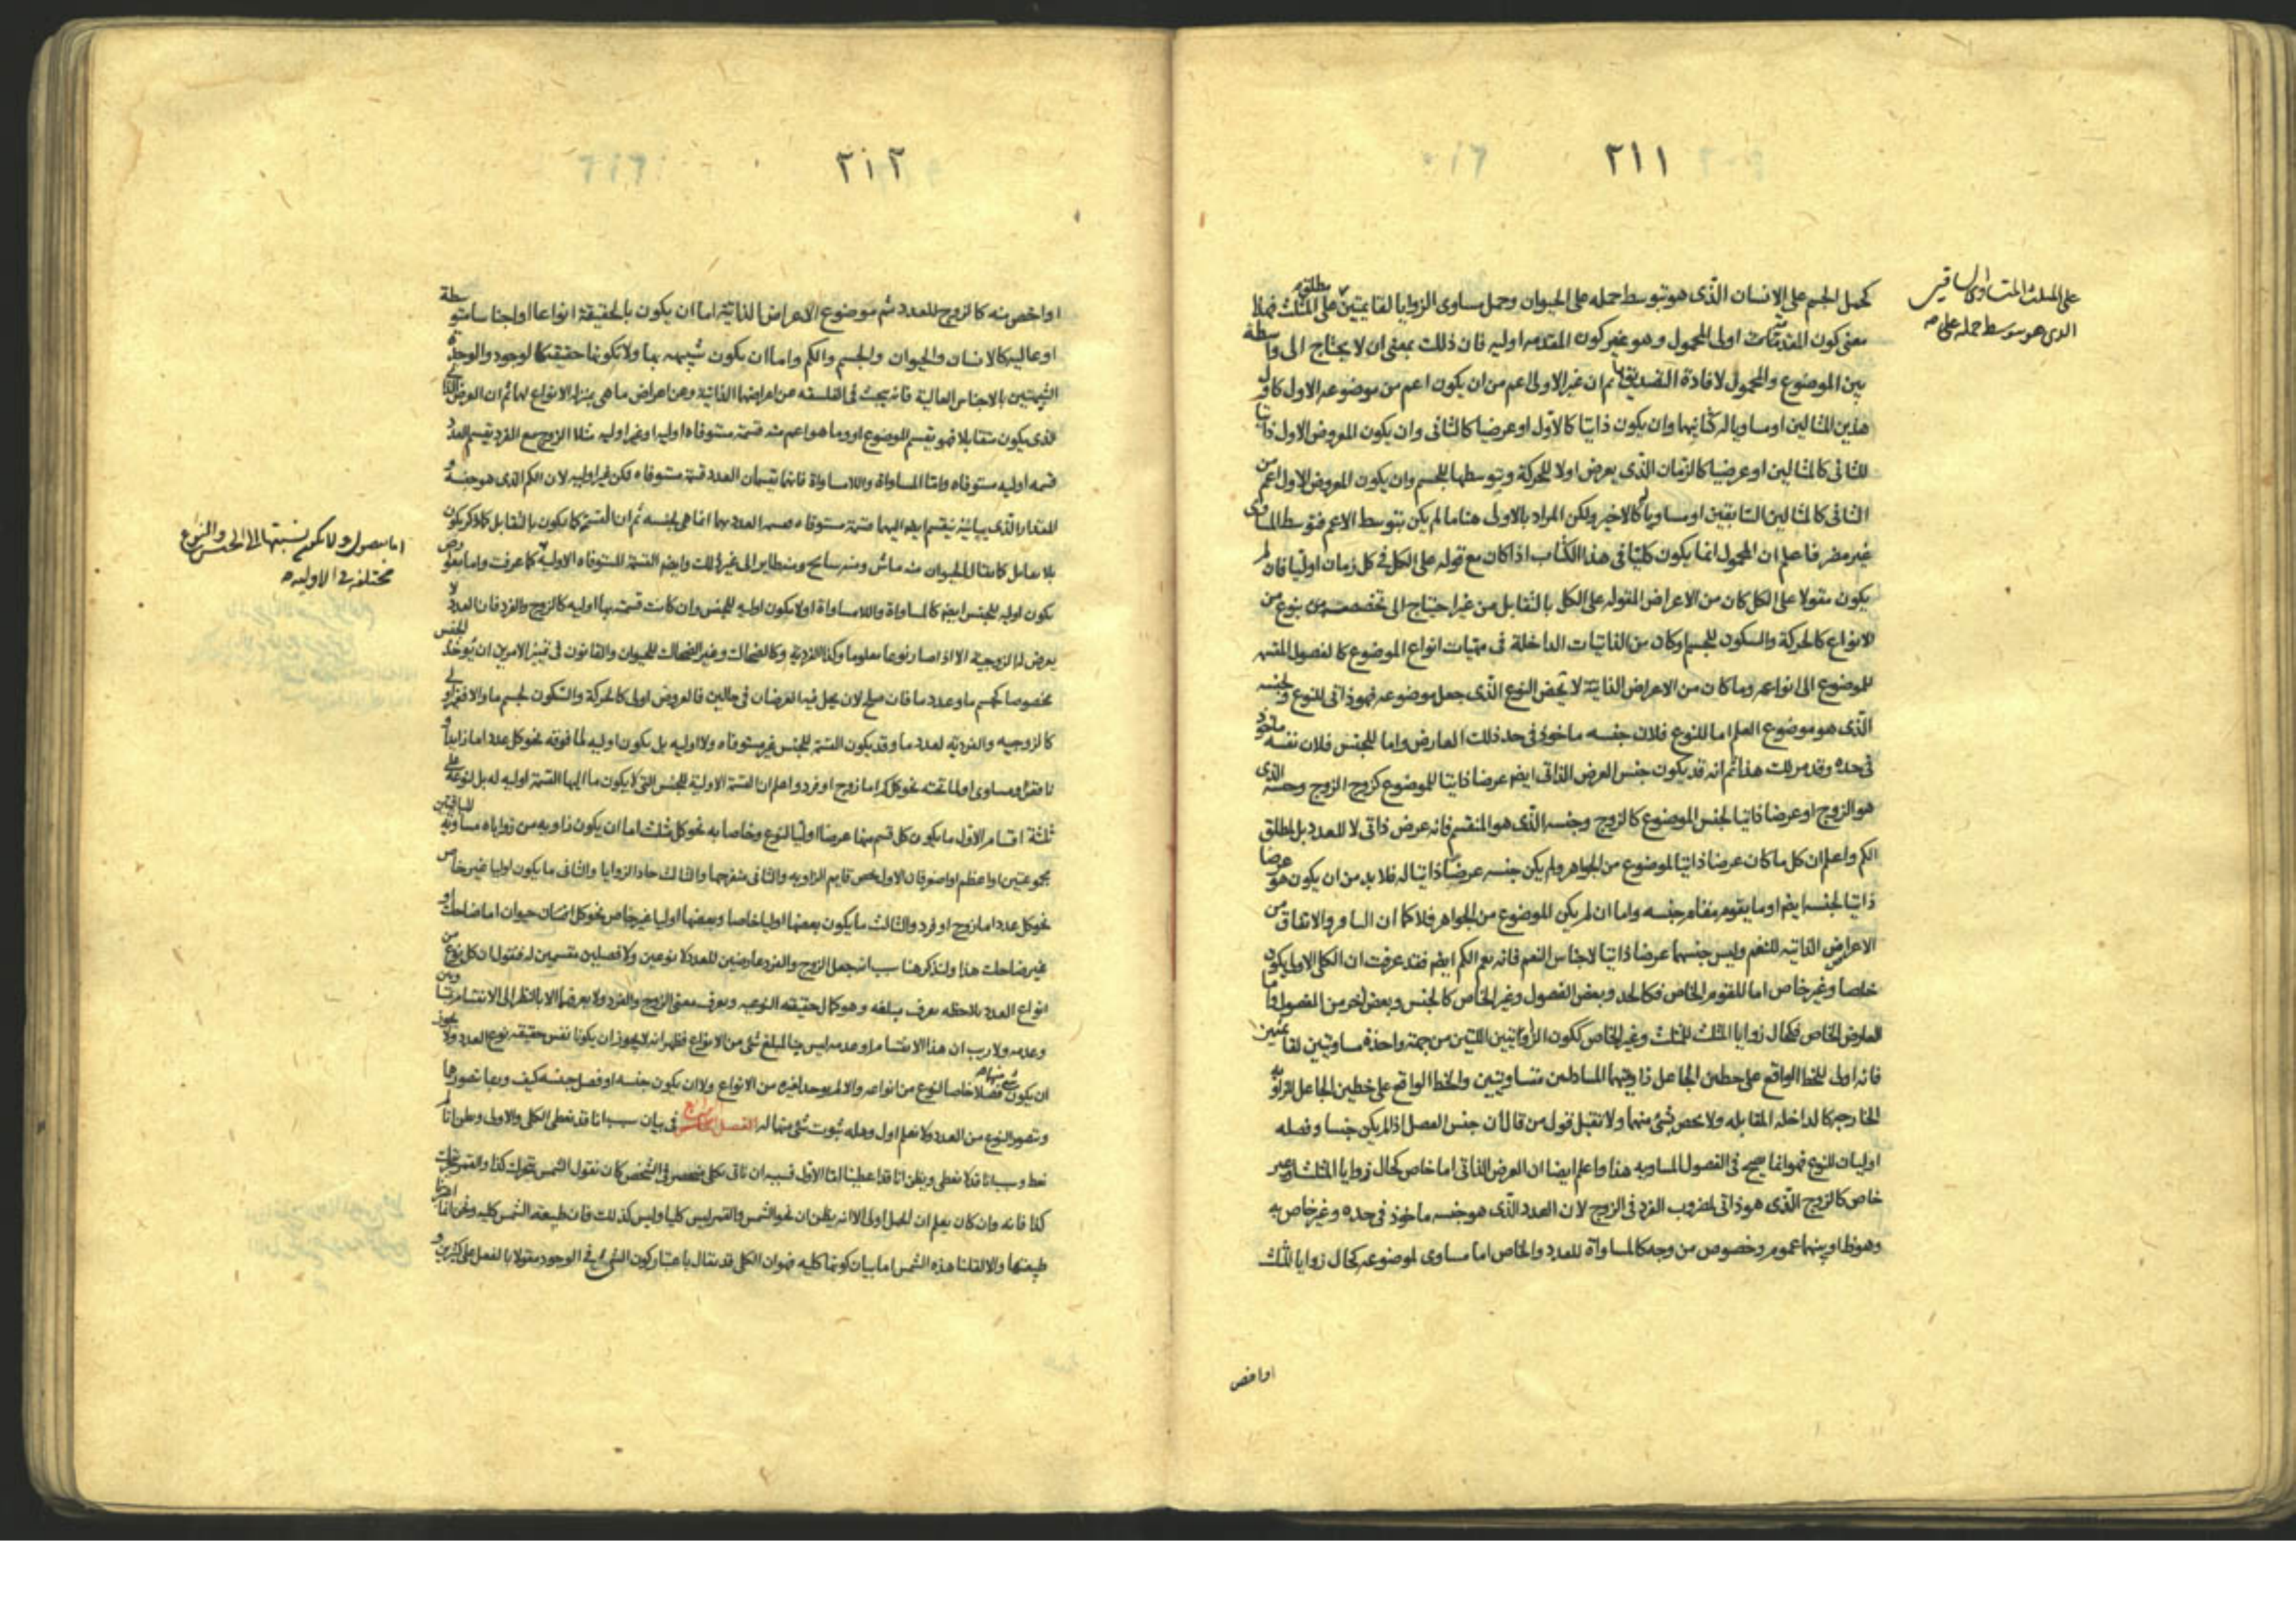 ٢١١
كحمل الجسم على الانسان الذى هو بتوسط حمله على الحيوان وحمل مساوى الزوايا لقايمتين على المثلث فهذا
معنى كون المقدمات اولى المحمول وهو غير كون المقدمه اوليه فان ذلك بمعنى ان لا يحتاج الى واسطة
بين الموضوع والمحمول لافادة التصديق ثم ان غير الاولى اعم من ان يكون اعم من موضوعه الاول كاول
هذين المثالين او مساويا له كثانيهما وان يكون ذاتيا كالاول او عرضيا كالثانى وان يكون المعروض الاول ذاتيا
للثانى كالمثالين او عرضيا كالزمان الذى يعرض اولا للحركة وبتوسطها للجسم وان يكون المعروض الاول اعم من
الثانى كالمثالين السابقين او مساويا كالاخير ولكن المراد بالاولى هنا ما لم يكن بتوسط الاعم فتوسط المساوى
غير مضر فاعلم ان المحمول انما يكون كليا فى هذا الكتاب اذا كان مع قوله على الكل فى كل زمان اوليا فان لم
يكون مقولا على الكل كان من الاعراض المقوله على الكل بالتقابل من غير احتياج الى بنوع من
الانواع كالحركة والسكون للجسم او كان من الذاتيات الداخلة فى مهيات انواع الموضوع كالفصول المقسمه
للموضوع الى انواعه وما كان من الاعراض الذاتية لا تخص النوع الذى جعل موضوعه فهو ذاتى للنوع ولجنسه
الذى هو موضوع العلم اما للنوع فلان جنسه ماخوذ فى حد ذلك العارض واما للجنس فلان نفسه ماخوذ
فى حده وقد مر لك هذا ثم انه قد يكون جنس العرض الذاتى ايضا عرضا ذاتيا للموضوع كزوج الزوج وجنسه الذى
هو الزوج او عرضا ذاتيا لجنس الموضوع كالزوج وجنسه الذى هو المنقسم فانه عرض ذاتى لا للعدد بل لمطلق
الكم واعلم ان كل ما كان عرضا ذاتيا لموضوع من الجواهر ولم يكن جنسه عرضا ذاتيا له فلا بد من ان يكون هو عرضا
ذاتيا لجنسه ايضا او ما يقوم مقام جنسه واما ان لم يكن الموضوع من الجواهر فلا كما ان والاتفاق من
الاعراض الذاتيه للنغم وليس جنسهما عرضا ذاتيا لاجناس النغم فانه يعم الكم ايضا فقد عرفت ان الكلى الاولى يكون
خاصا وغير خاص اما للمقوم الخاص فكالحد وبعض الفصول وغير الخاص كالجنس وبعض اخر من الفصول واما
العارض الخاص فكحال زوايا المثلث للمثلث وغير الخاص ككون الزاويتين اللتين من جهة واحدة مساويتين لقائمتين
فانه اولى للخط الواقع على خطين الجاعل زاويتهما المتبادلتين متساويتين والخط الواقع على خطين الجاعل الزاويه
الخارجه كالداخله المقابله ولا يخص بشئ منهما ولا تقبل قول من قال ان جنس الفصل اذا لم يكن جنسا وفصله
اوليان للنوع فهو انما يصح فى الفصول المساويه هذا واعلم ايضا ان العرض الذاتى اما خاص كحال زوايا المثلث او غير
خاص كالزوج الذى هو ذاتى لمضروب الفرد فى الزوج لان العدد الذى هو جنسه ماخوذ فى حده وغير خاص به
وهو اما وبينهما عموم وخصوص من وجه كالمساواة للعدد والخاص اما مساوى لموضوعه كحال زوايا المثلث
اواخص
على المثلث المتساوى الساقين
الذى هو بتوسط حمله على
٢١٢
او اخص منه كالزوج للعدد ثم موضوع الاعراض الذاتية اما ان يكون بالحقيقة انواعا او اجناسا متوسطة
او عاليه كالانسان والحيوان والجسم والكم واما ان يكون شبيهه بها ولا يكونها حقيقة كالوجود والوحدة
الشبيهتين بالاجناس العالية فانه يبحث فى الفلسفه عن اعراضها الذاتية وعن اعراض ما هى بمنزلة الانواع لها ثم ان العرض الذاتى
الذى يكون متقابلا فهو يقسم الموضوع او ما هو اعم منه قسمة مستوفاه اوليه او غير اوليه مثلا الزوج مع الفرد يقسم العدد
قسمه اوليه مستوفاه واما المساواة واللامساواة فانهما يقسمان العدد قسمة مستوفاه لكن غير اوليه لان الكم الذى هو جنسه و
المقدار الذى يباينه ينقسم ايضا اليهما قسمة مستوفاه العدد بهما انما هى لجنسه ثم ان القسمة كما يكون بالتقابل كما ذكر يكون
بلا تقابل كما يقال الحيوان منه ماش ومنه سابح ومنه طاير الى غير ذلك وايضا القسمة المستوفاه الاولية كما عرفت واما
يكون اوليه للجنس ايضا كالمساواة واللامساواة او لا يكون اوليه للجنس وان كانت قسمته بها اوليه كالزوج والفرد فان العدد لا
يعرض له الزوجية الا اذا صار نوعا معلوما وكذا الفردية وكالضحاك وغير الضحاك للحيوان والقانون فى تمييز الامرين ان يوخذ الجنس
مخصوصا كجسم ما وعدد ما فان صلح لان يحل فيه العرضان فى حالين فالعروض اولى كالحركة والسكون لجسم ما والا فغير اولى
كالزوجيه والفردية لعدد ما وقد يكون القسمة للجنس غير مستوفاه ولا اوليه بل يكون اوليه لما فوقه نحو كل عدد اما زايد او
ناقص او مساوى او لما تحته نحو كل كم اما زوج او فرد واعلم ان القسمة الاولية للجنس التى لا يكون ما اليها القسمة اوليه له بل لنوعه على
ثلثة اقسام الاول ما يكون كل قسم منها عرضا اوليا لنوع وخاصا به نحو كل مثلث اما ان يكون زاويه من زواياه مساويه للباقيتين
مجموعتين او اعظم او اصغر فان الاول يخص قايم الزاويه والثانى منفرجها والثالث حاد الزوايا والثانى ما يكون اوليا غير خاص
نحو كل عدد اما زوج او فرد والثالث ما يكون بعضها اوليا خاصا وبعضها اوليا غير خاص نحو كل انسان حيوان اما ضاحك او
غير ضاحك هذا ولنذكر هنا سبب انه جعل الزوج والفرد عارضين للعدد لا نوعين ولا فصلين مقسمين له فنقول ان كل نوع من
انواع العدد يعرف بمبلغه وهو كمال حقيقته النوعيه ويعرف معنى الزوج والفرد ولا يعرضها الا بالنظر الى الانقسام
وعدمه ولا ريب ان هذا الانقسام او عدمه ليس مبلغ شئ من الانواع فظهر انه لا يجوز ان يكونا نفس حقيقة نوع العدد ولا يجوز
ان يكون شئ منهما فصلا خاصا لنوع من انواعه والا لم يوجد لغيره من الانواع ولا ان يكون جنسه او فصل جنسه كيف وربما تصورها
وتصور النوع من العدد ولا نعلم اول وهله ثبوت شئ منهما له الفصل فى بيان سبب انا قد نعطى الكلى والاولى ونظن انا لم
نعط وسبب انا قد لا نعطى ونظن انا قد اعطينا اما الاول فسببه ان ناتى بكلى فى الشخص كان نقول الشمس يتحرك كذا والقمر يتحرك
كذا فانه وان كان يعلم ان الحمل اولى الا انه يظن ان نحو الشمس والقمر ليس كليا وليس كذلك فان طبيعة الشمس كليه ونحن انما اخذنا
طبيعتها والا لقلنا هذه الشمس اما بيان كونها كليه فهو ان الكلى قد يقال باعتبار كون الشئ فى الوجود مقولا بالفعل على كثيرين و
اما بفصول ولا يكون نسبتها الى الجنس والنوع
مختلفة فى الاوليه